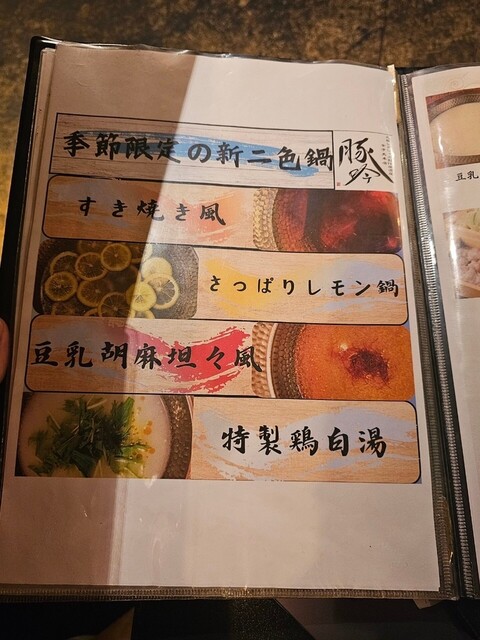 季節限定の新二色鍋
豚
すき焼き風
さっぱりレモン鍋
豆乳胡麻坦々風
特製鶏白湯
豆乳